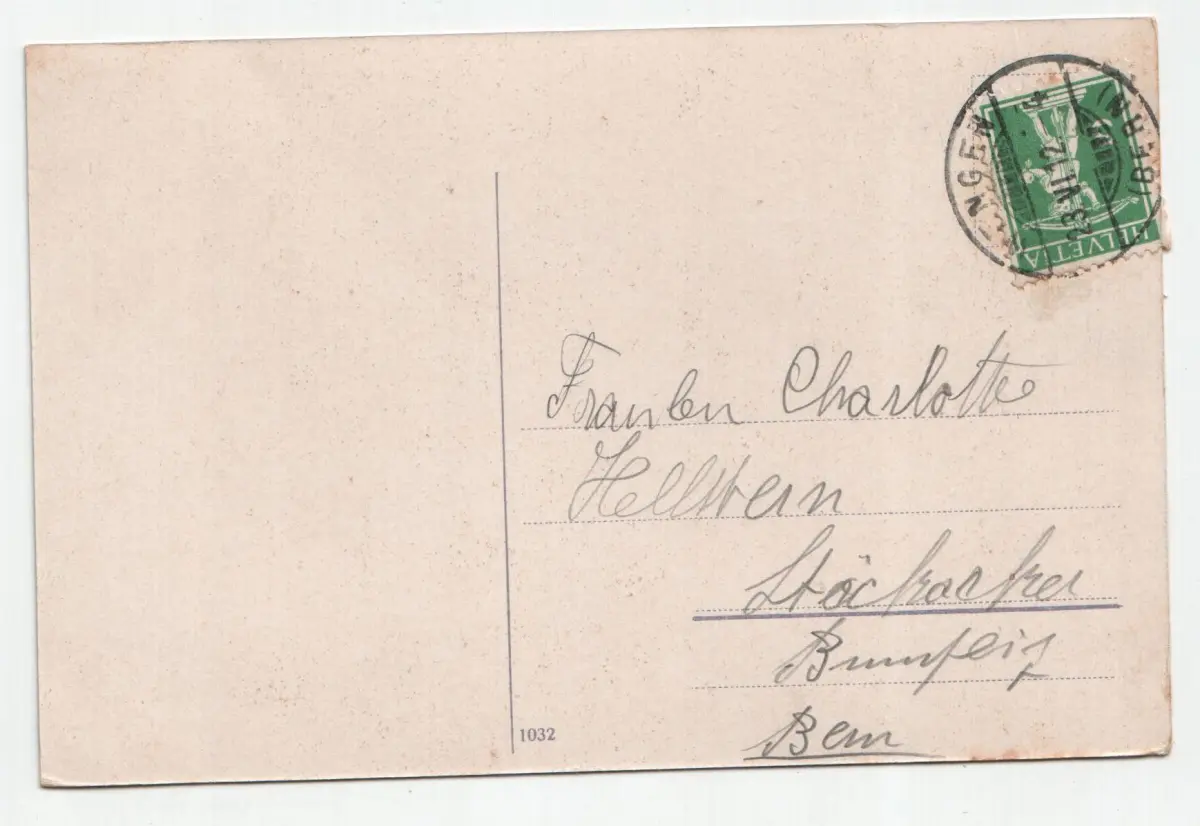 (BERN)
23.VI.12
HELVETIA
Fraulen Charlotte
Hellstern
Stöckacker
Bümpliz
Bern
1032